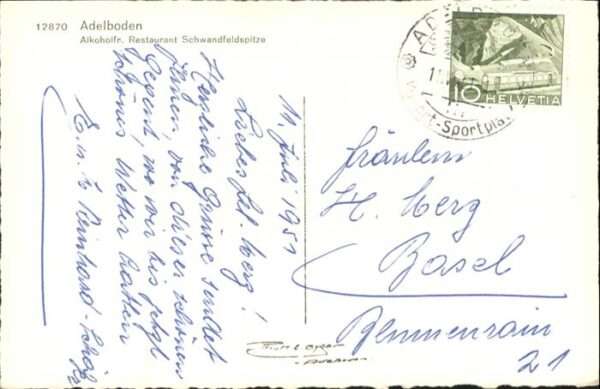 12870 Adelboden
Alkoholfr. Restaurant Schwandfeldspitze
11. Juli 1951
Liebes Frl. Merg!
Herzliche Grüsse sendet
Ihnen, von dieser schönen
Gegend, wo wir bis jetzt
schönes Wetter hatten
E. u. E. Reinhard
ADELBODEN
Sportpla
10 HELVETIA
Fräulein
H. Merg
Basel
Blumenrain
21